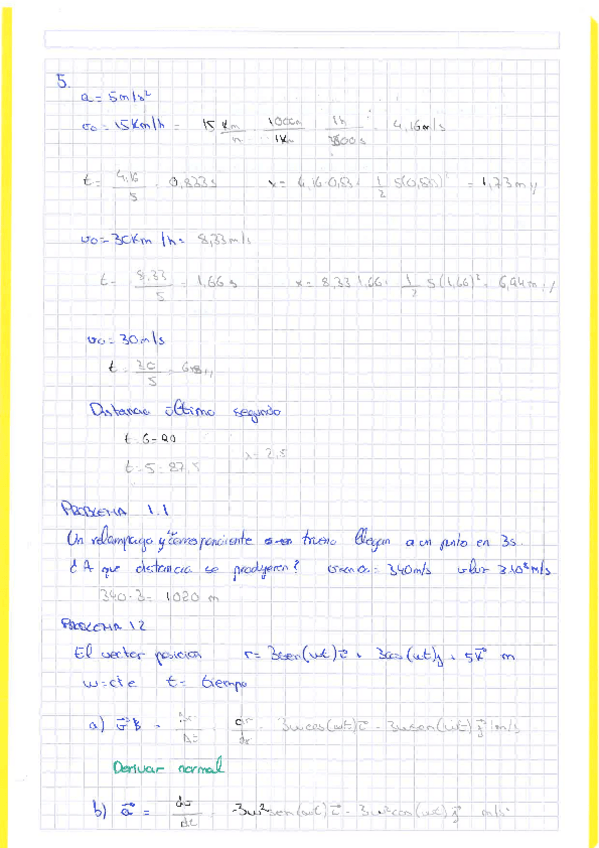 5.
a = 5m/s²
v0 = 15Km/h = 15 Km/h · 1000m/1Km · 1h/3600s = 4,16m/s
t = 4,16/5 = 0,833s x = 4,16·0,83 · 1/2 5(0,83)² = 1,73m
v0 = 30Km/h = 8,33m/s
t = 8,33/5 = 1,66s x = 8,33·1,66 · 1/2 5(1,66)² = 6,94m
v0 = 30m/s
t = 30/5 = 6s
Distancia último segundo
t=6=90
t=5=87,5 x=2,5
PROBLEMA 1.1
Un relampago y correspondiente trueno llegan a un punto en 3s.
¿A que distancia se produjeron? = 340m/s 3·10⁸m/s
340·3 = 1020 m
PROBLEMA 1.2
El vector posicion r = 3sen(wt)i + 3cos(wt)j + 5k m
w=cte t= tiempo
a) v = = dr/dt = 3wcos(wt)i - 3wsen(wt)j m/s
Derivar normal
b) a = dv/dt = -3w²sen(wt)i - 3w²cos(wt)j m/s²